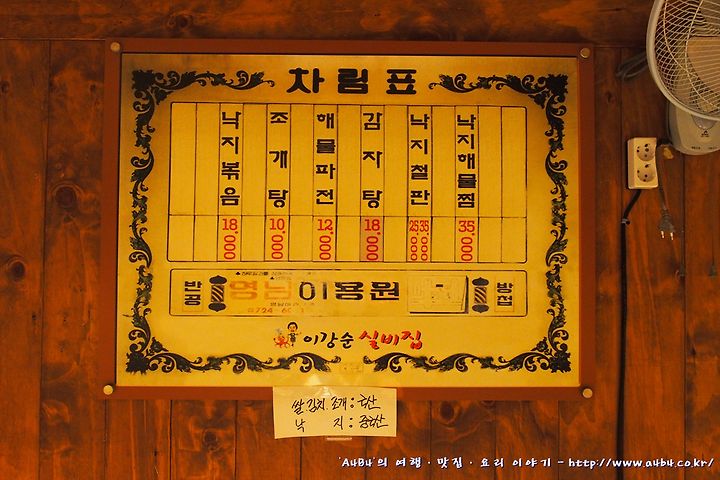 차림표
낙지볶음 18.000
조개탕 10.000
해물파전 12.000
감자탕 18.000
낙지철판 25.000 35.000
낙지해물찜 35.000
반공 영남이용원 방첩
이강순 실비집
쌀.김치.조개:국산
낙 지:중국산
'AuBu'의 여행·맛집·요리 이야기 - http://www.aubu.co.kr/